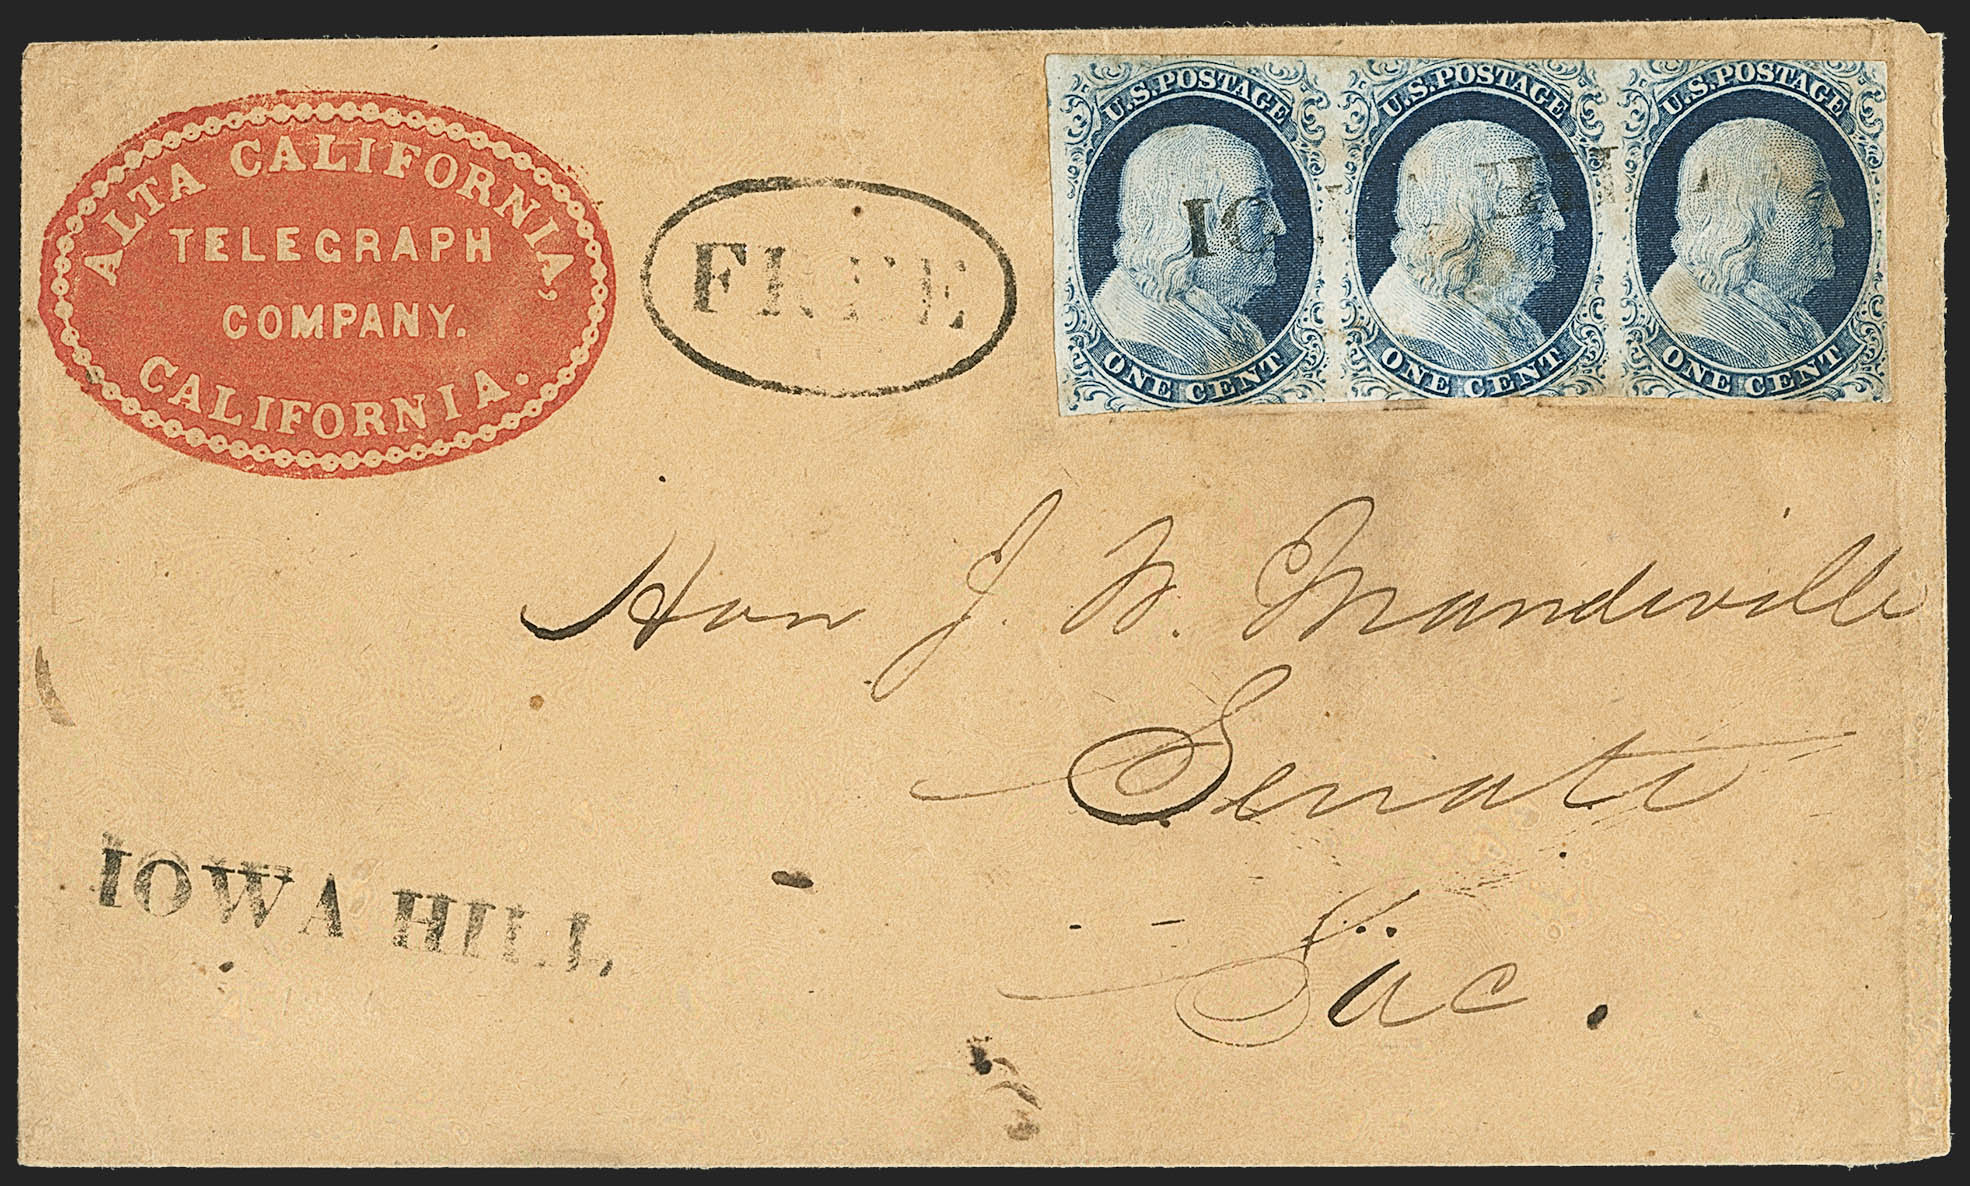 ALTA CALIFORNIA,
TELEGRAPH
COMPANY.
CALIFORNIA.
FREE
U.S. POSTAGE
ONE CENT
U.S. POSTAGE
ONE CENT
U.S. POSTAGE
ONE CENT
IOWA HILL
Hon J. W. Mandeville
Senate
Sac.
IOWA HILL,